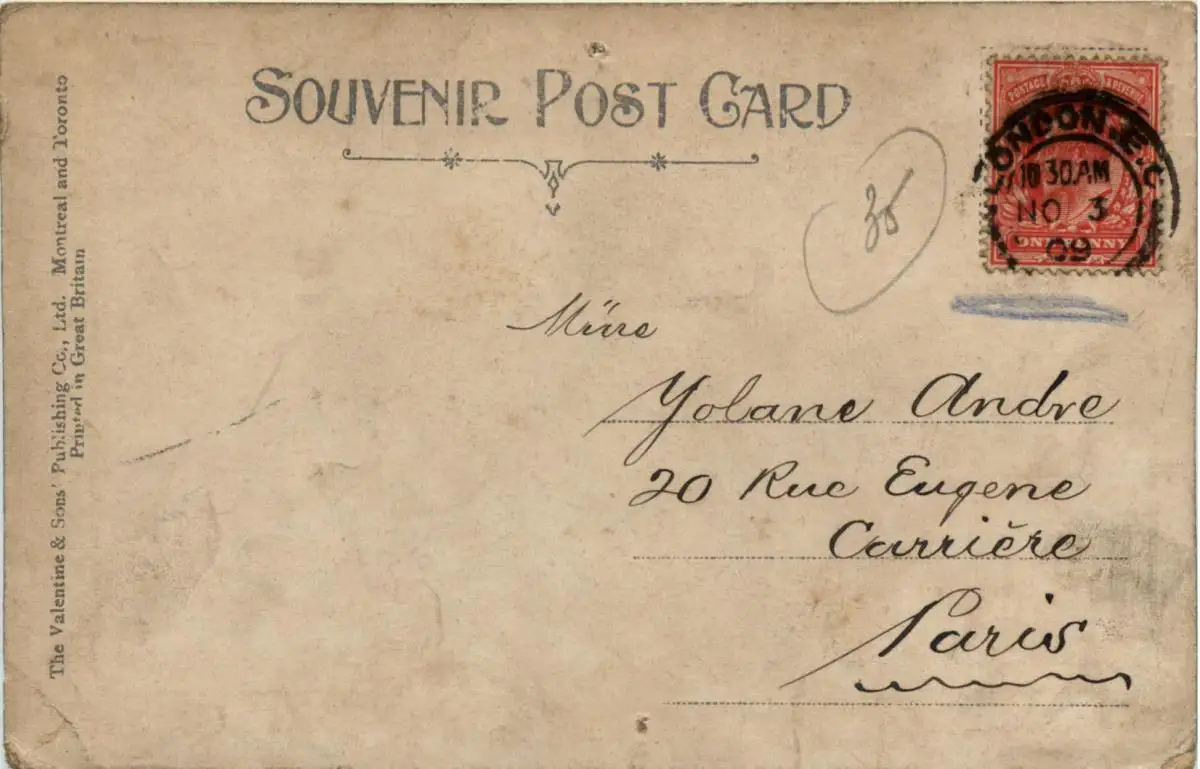 SOUVENIR POST CARD
The Valentine & Sons' Publishing Co., Ltd. Montreal and Toronto
Printed in Great Britain
POSTAGE & REVENUE
LONDON. E.C
10 30.AM
NO 3
09
ONE PENNY
35
Yolane Andre
20 Rue Eugene
Carrière
Paris